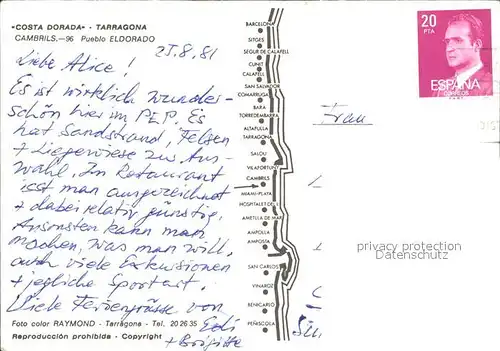 «COSTA DORADA» - TARRAGONA
CAMBRILS.—96 Pueblo ELDORADO
25.8.81
Liebe Alice!
Es ist wirklich wunder-
schön hier im PEP. Es
hat Sandstrand, Felsen
+ Liegewiese zur Aus-
wahl. Im Restaurant
isst man ausgezeichnet
+ dabei relativ günstig.
Ansonsten kann man
machen, was man will,
auch viele Exkursionen
+ jegliche Sportart.
Viele Feriengrüsse von
Edi
+ Brigitte
Foto color RAYMOND - Tarragona - Tel. 20 26 35
Reproducción prohibida - Copyright
BARCELONA
SITGES
SEGUR DE CALAFELL
CUNIT
CALAFELL
SAN SALVADOR
COMARRUGA
BARA
TORREDEMBARRA
ALTAFULLA
TARRAGONA
SALOU
VILAFORTUNY
CAMBRILS
MIAMI-PLAYA
HOSPITALET DEL I.
AMETLLA DE MAR
AMPOLLA
AMPOSTA
SAN CARLOS
VINAROZ
BENICARLO
PEÑISCOLA
20
PTA
ESPAÑA
CORREOS
Frau
copyrightpflichtig
Datenschutz